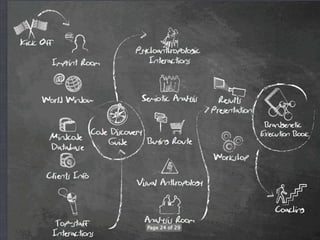 Kick Off
Imprint Room
World Window
Mindcode
Database
Clients Info
Top-staff
Interactions
Code Discovery
Guide
Psycloanthropologic
Interactions
Semiotic Analysis
Buying Route
Visual Anthropology
Analysis Room
Results
/ Presentation
Workshop
Brandgenetic
Execution Book
Coaching
Page 24 of 29